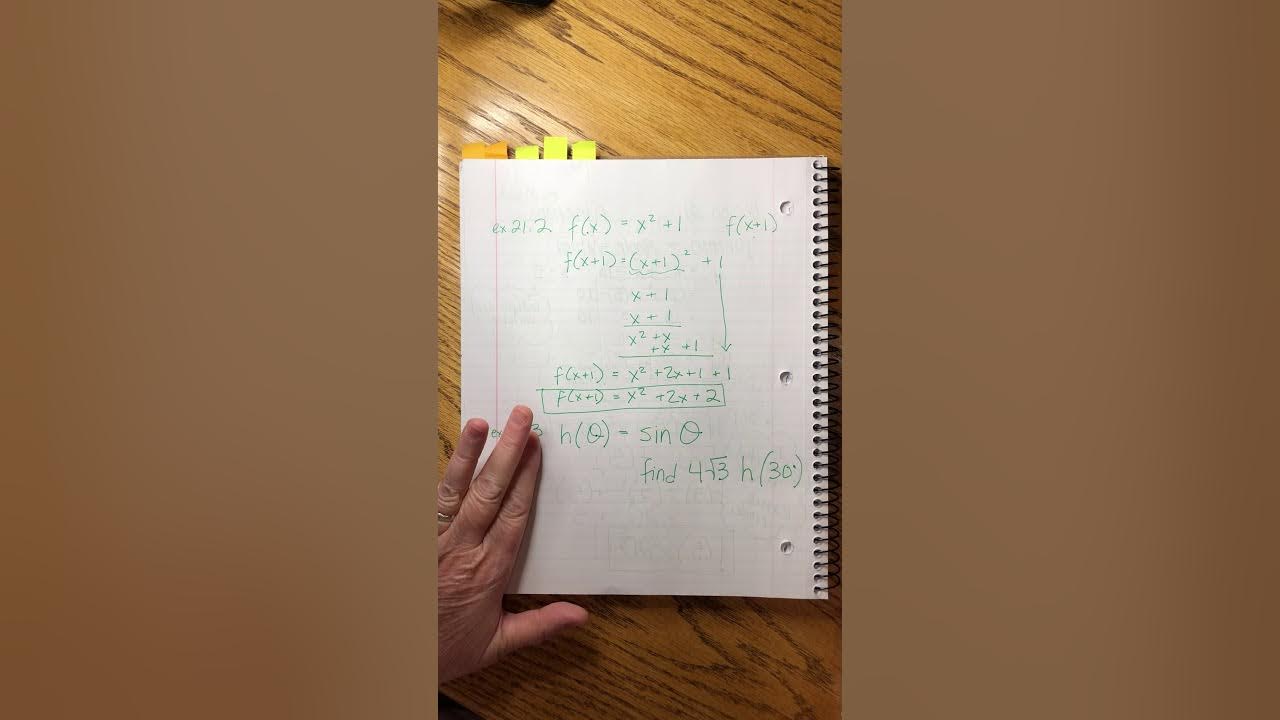 ex 21.2 f(x) = x² + 1 f(x+1)
f(x+1) = (x+1)² + 1
x + 1
x + 1
x² + x
+x +1
f(x+1) = x² + 2x + 1 + 1
f(x+1) = x² + 2x + 2
3 h(θ) = sin θ
find 4√3 h(30°)